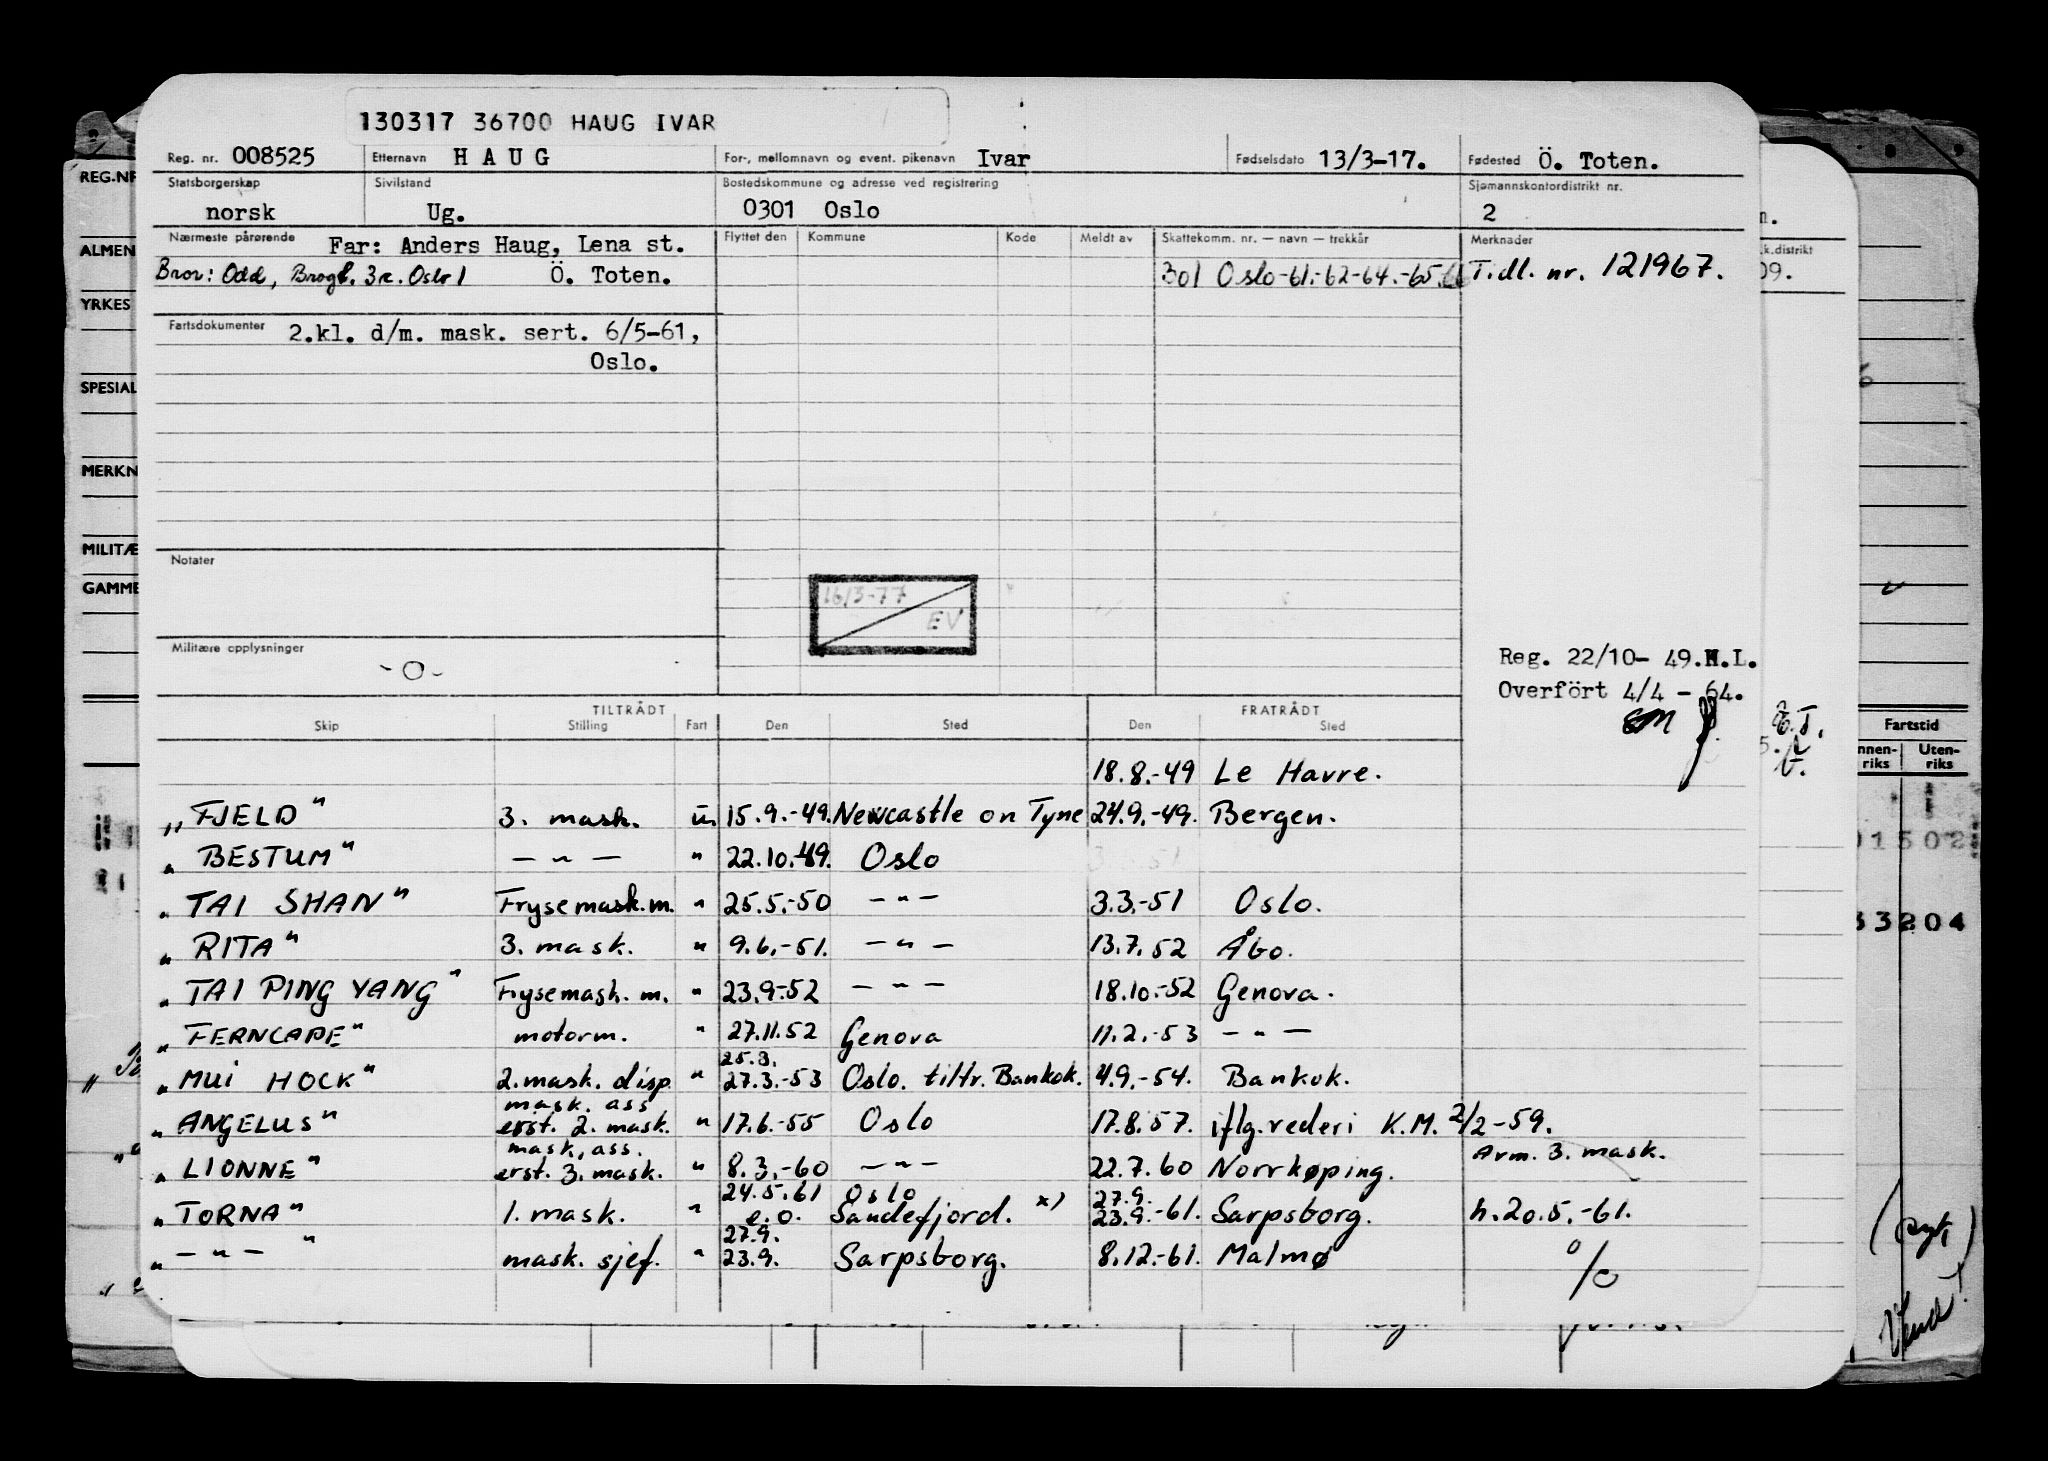 130317 36700 HAUG IVAR
Reg. nr. 008525 Etternavn HAUG For-, mellomnavn og event. pikenavn Ivar Fødselsdato 13/3-17. Fødested Ö. Toten.
Statsborgerskap Sivilstand Bostedskommune og adresse ved registrering Sjømannskontordistrikt nr.
norsk Ug. 0301 Oslo 2
Nærmeste pårørende Far: Anders Haug, Lena st. Flyttet den Kommune Kode Meldt av Skattekomm. nr. — navn — trekkår Merknader
Bror: Odd, Brogt. 3c. Oslo 1 Ö. Toten. 301 Oslo -61.-62-64.-65. Tidl. nr. 121967.
Fartsdokumenter 2.kl. d/m. mask. sert. 6/5-61,
Oslo.
Notater
16/3-77
EV
Militære opplysninger
-0-
Reg. 22/10- 49. L.
Overfört 4/4 - 64.
TILTRÅDT FRATRÅDT
Skip Stilling Fart Den Sted Den Sted
18.8.-49 Le Havre.
„FJELD" 3. mask. u. 15.9.-49. Newcastle on Tyne 24.9.-49. Bergen.
„ BESTUM" — " — " 22.10.-49. Oslo
„ TAI SHAN" Frysemask.m. " 25.5.-50 — " — 3.3.-51 Oslo.
„ RITA" 3. mask. " 9.6.-51. — " — 13.7.52 Åbo.
„ TAI PING YANG" Frysemask. m. " 23.9.-52 — " — 18.10.-52 Genova.
„ FERNCAPE" motorm. " 27.11.52 Genova 11.2.-53 — " —
25.3.
„ MUI HOCK" 2. mask. disp. " 27.3.-53 Oslo. tiltr. Bankok. 4.9.-54. Bankok.
mask. ass
„ ANGELUS" erst. 2. mask. " 17.6.-55 Oslo 17.8.57. iflg. rederi K.M. 2/2-59.
mask. ass. Avm. 3. mask.
„ LIONNE" erst. 3. mask. " 8.3.-60 — " — 22.7.60 Norrkøping.
24.5.61 Oslo 27.9.
„ TORNA" 1. mask. " e.o. Sandefjord. x) 23.9.-61. Sarpsborg. h.20.5.-61.
27.9.
„ — " — " mask. sjef. " 23.9. Sarpsborg. 8.12.-61. Malmø
REG.NR
ALMEN
YRKES
SPESIAL
MERKN
MILITÆ
GAMME
k.distrikt
09.
Fartstid
nnen-riks Uten-riks
01502
33204